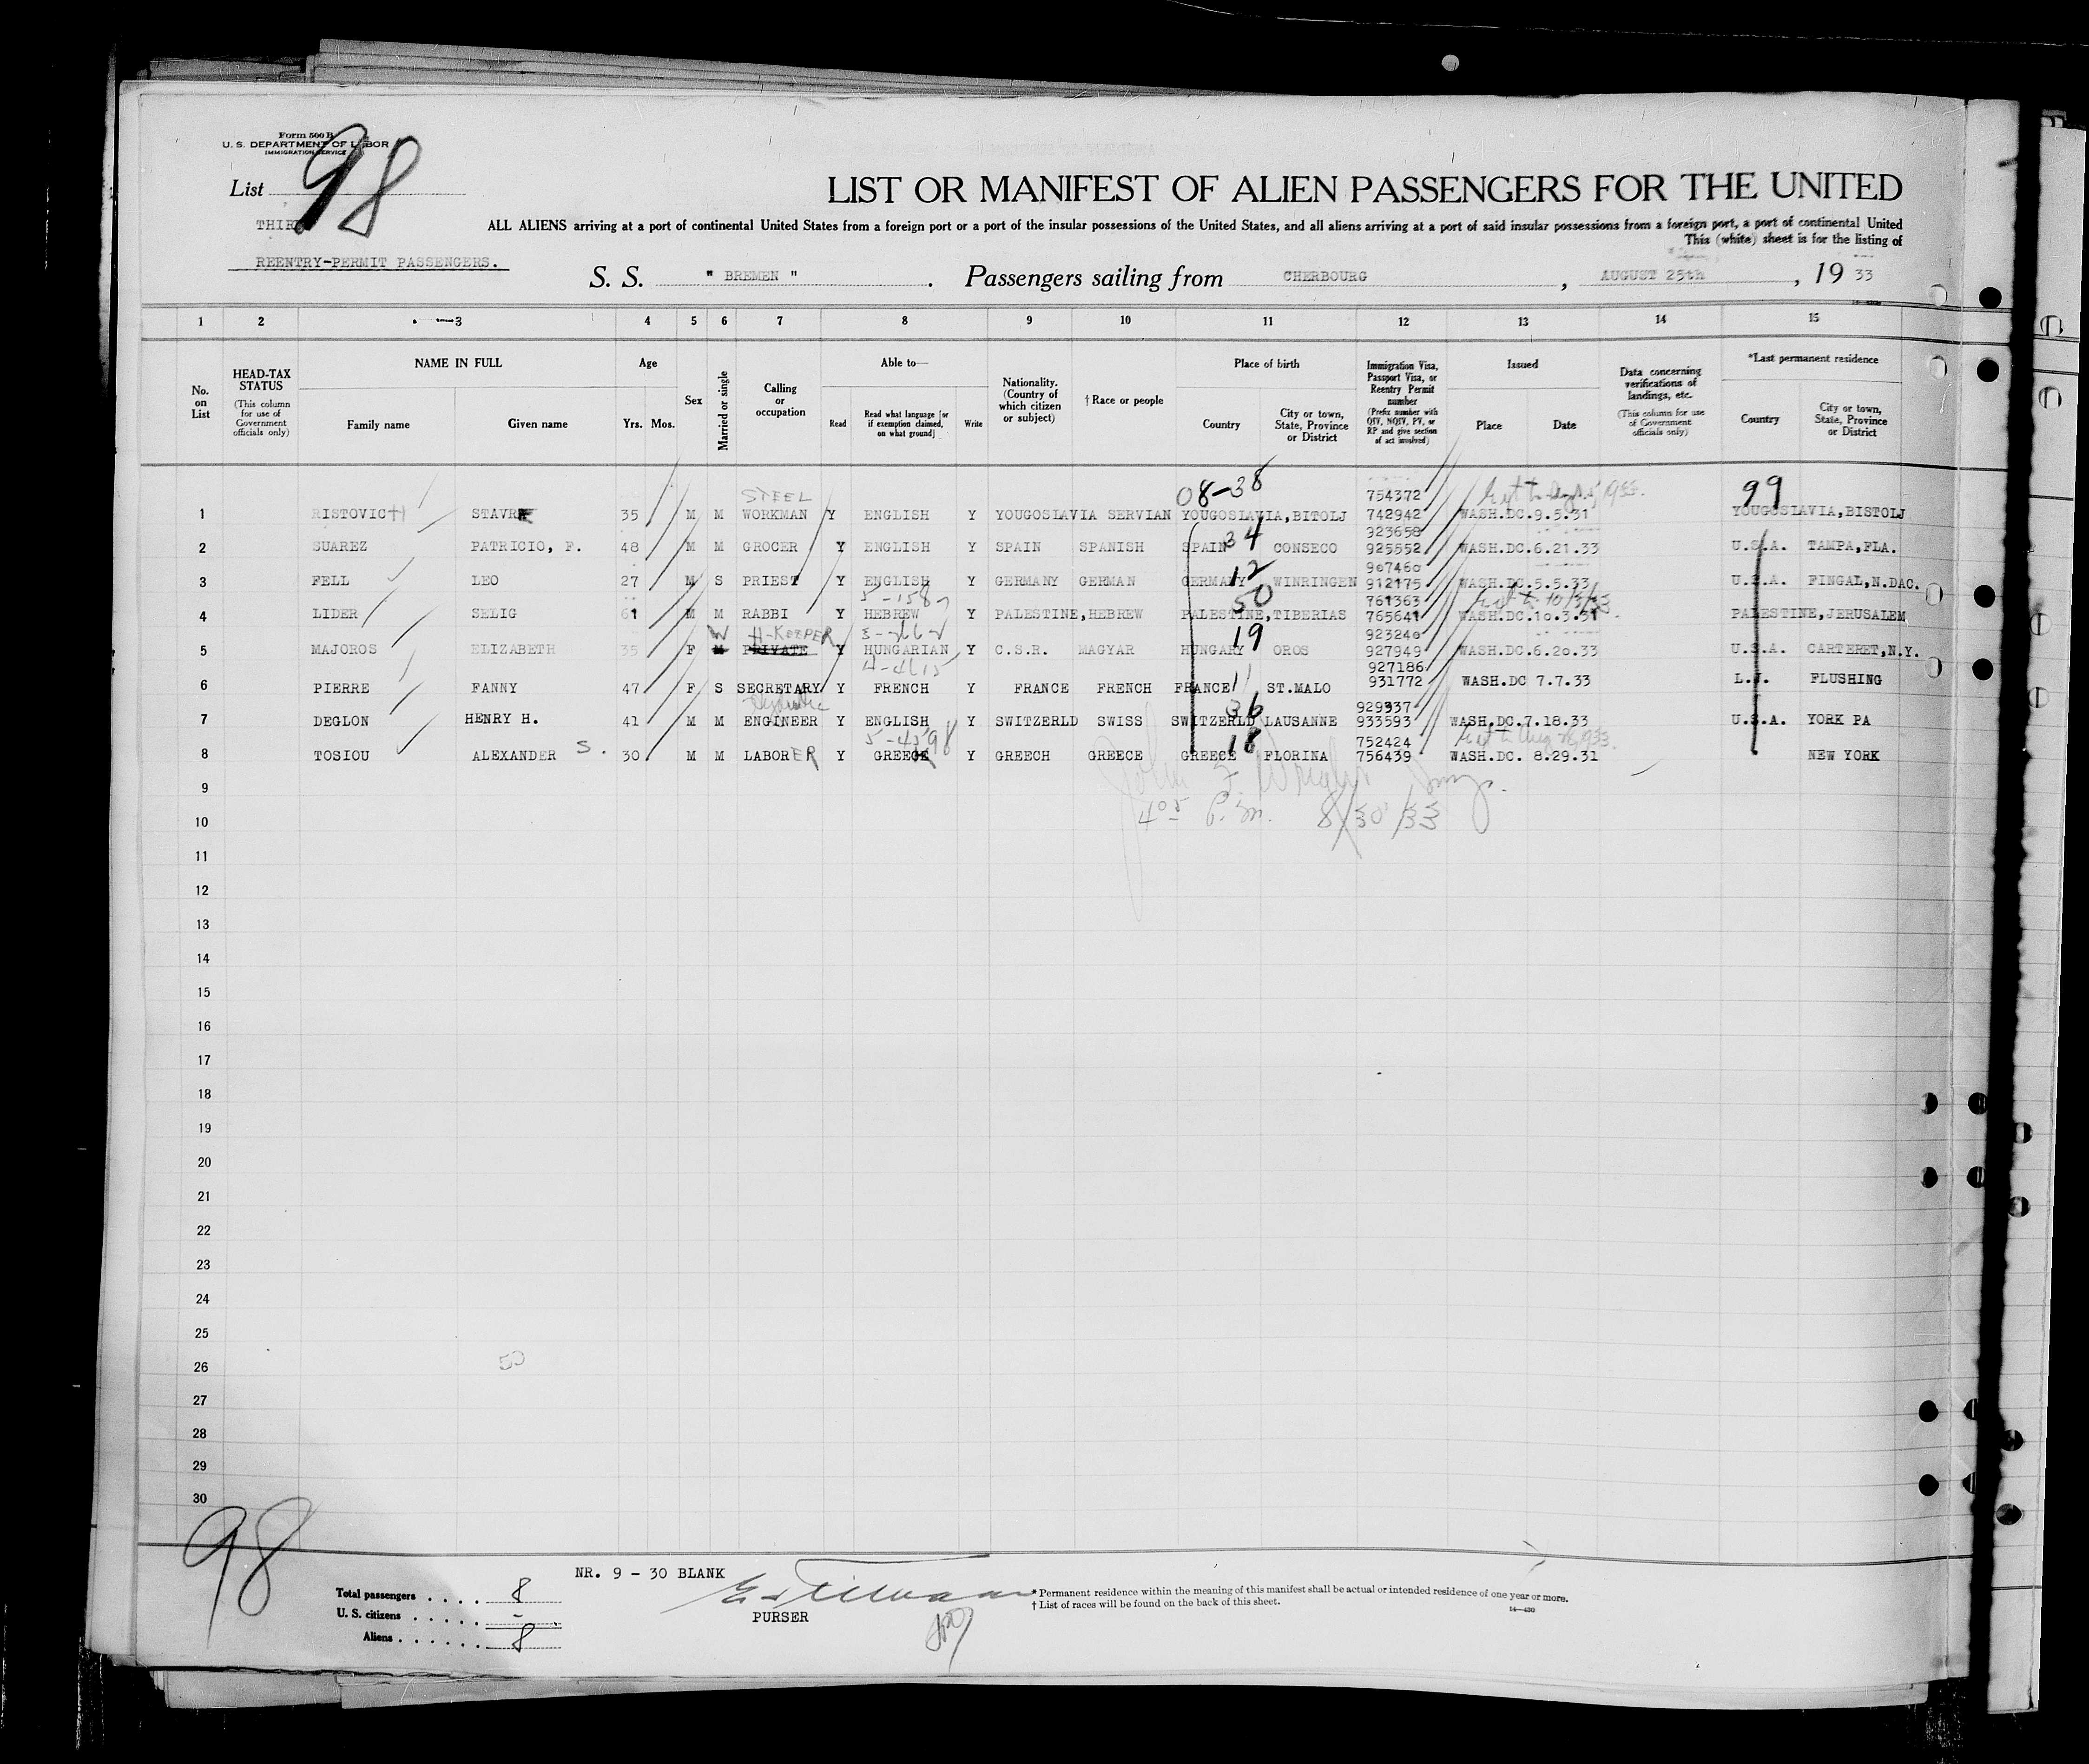 Form 500 B
U. S. DEPARTMENT OF LABOR
IMMIGRATION SERVICE
List 98
LIST OR MANIFEST OF ALIEN PASSENGERS FOR THE UNITED
THIRD
ALL ALIENS arriving at a port of continental United States from a foreign port or a port of the insular possessions of the United States, and all aliens arriving at a port of said insular possessions from a foreign port, a port of continental United
This (white) sheet is for the listing of
REENTRY-PERMIT PASSENGERS.
S. S. " BREMEN ". Passengers sailing from CHERBOURG, AUGUST 25th, 19 33
1 2 3 4 5 6 7 8 9 10 11 12 13 14 15
No. on List
HEAD-TAX STATUS (This column for use of Government officials only)
NAME IN FULL
Family name Given name
Age
Yrs. Mos.
Sex
Married or single
Calling or occupation
Able to—
Read
Read what language [or if exemption claimed, on what ground]
Write
Nationality. (Country of which citizen or subject)
† Race or people
Place of birth
Country
City or town, State, Province or District
Immigration Visa, Passport Visa, or Reentry Permit number (Prefix number with QIV, NQIV, PV, or RP and give section of act involved)
Issued
Place Date
Data concerning verifications of landings, etc. (This column for use of Government officials only)
*Last permanent residence
Country
City or town, State, Province or District
STEEL 08-38 754372 99
1 RISTOVICH STAVR 35 M M WORKMAN Y ENGLISH Y YOUGOSLAVIA SERVIAN YOUGOSLAVIA,BITOLJ 742942 WASH.DC.9.5.31 YOUGOSLAVIA,BISTOLJ
34 923658
2 SUAREZ PATRICIO, F. 48 M M GROCER Y ENGLISH Y SPAIN SPANISH SPAIN CONSECO 925552 WASH.DC.6.21.33 U.S.A. TAMPA,FLA.
12 907460
3 FELL LEO 27 M S PRIEST Y ENGLISH Y GERMANY GERMAN GERMANY WINRINGEN 912175 WASH.DC.5.5.33 U.S.A. FINGAL,N.DAC.
50 761363
4 LIDER SELIG 61 M M RABBI Y HEBREW Y PALESTINE,HEBREW PALESTINE,TIBERIAS 765641 WASH.DC.10.3.31 PALESTINE,JERUSALEM
W H-KEEPER 19 923240
5 MAJOROS ELIZABETH 35 F M PRIVATE Y HUNGARIAN Y C.S.R. MAGYAR HUNGARY OROS 927949 WASH.DC.6.20.33 U.S.A. CARTERET,N.Y.
4-4615 11 927186
6 PIERRE FANNY 47 F S SECRETARY Y FRENCH Y FRANCE FRENCH FRANCE ST.MALO 931772 WASH.DC 7.7.33 L.I. FLUSHING
36 929337
7 DEGLON HENRY H. 41 M M ENGINEER Y ENGLISH Y SWITZERLD SWISS SWITZERLD LAUSANNE 933593 WASH.DC.7.18.33 U.S.A. YORK PA
18 752424
8 TOSIOU ALEXANDER S. 30 M M LABORER Y GREEK Y GREECH GREECE GREECE FLORINA 756439 WASH.DC. 8.29.31 NEW YORK
9
10 8/30/33
11
12
13
14
15
16
17
18
19
20
21
22
23
24
25
26 50
27
28
29
30
98
NR. 9 - 30 BLANK
PURSER
Total passengers . . . . 8
U. S. citizens . . . . . -
Aliens . . . . . . 8
* Permanent residence within the meaning of this manifest shall be actual or intended residence of one year or more.
† List of races will be found on the back of this sheet.